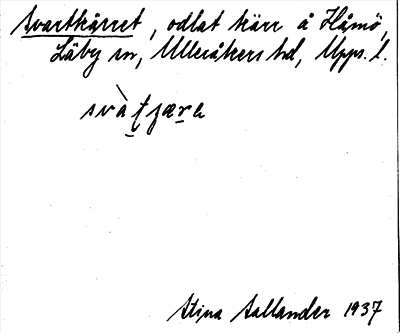 Svartkärret, odlat kärr å Håmö,
Läby sn, Ulleråkers hd, Upps. l.
svàt̠ɟær̠a
Stina Sallander 1937